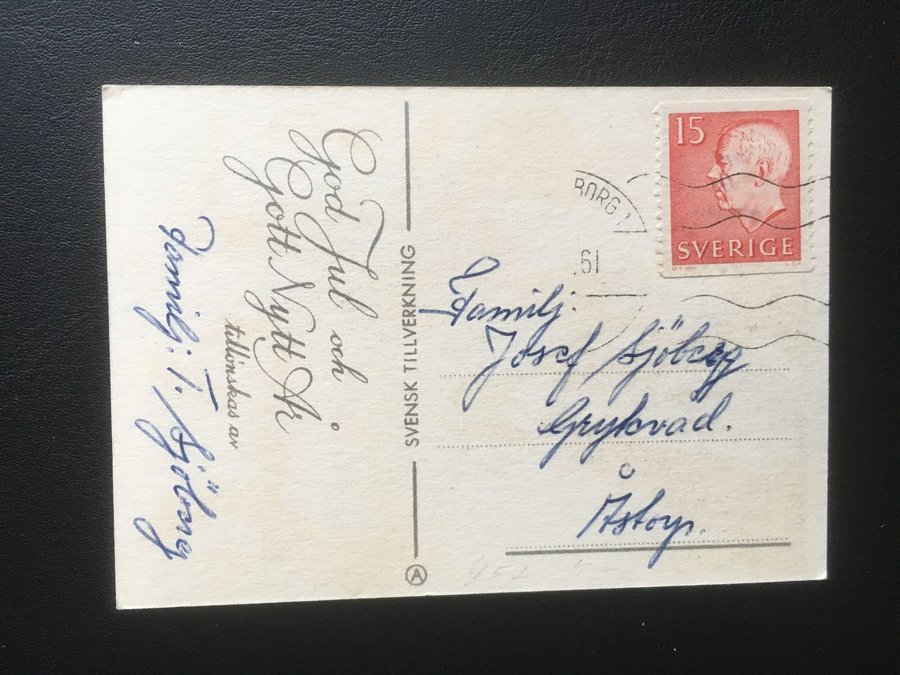 God Jul och
Gott Nytt År
tillönskas av
Familj: T. Sjöberg
SVENSK TILLVERKNING
A
15
SVERIGE
BORG 1
.61
Familj:
Josef Sjöberg
Grykvad.
Åstorp.